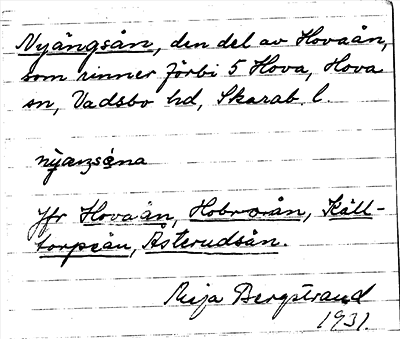 Nyängsån, den del av Hovaån,
som rinner förbi 5 Hova, Hova
sn, Vadsbo hd, Skarab. l.
Jfr Hovaån, Hobroån, Käll-
torpsån, Åsterudsån.
Meja Bergstrand
1931.